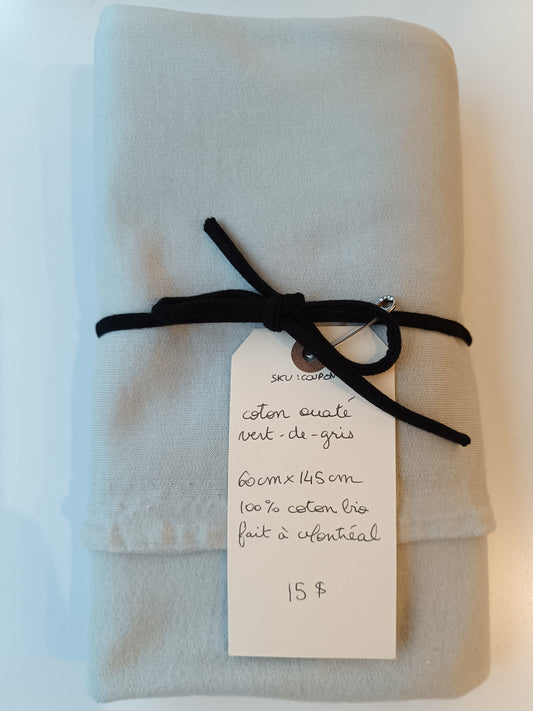 SKU: COUPON
coton ouaté
vert-de-gris
60cm x 145cm
100% coton bio
fait à Montréal
15 $